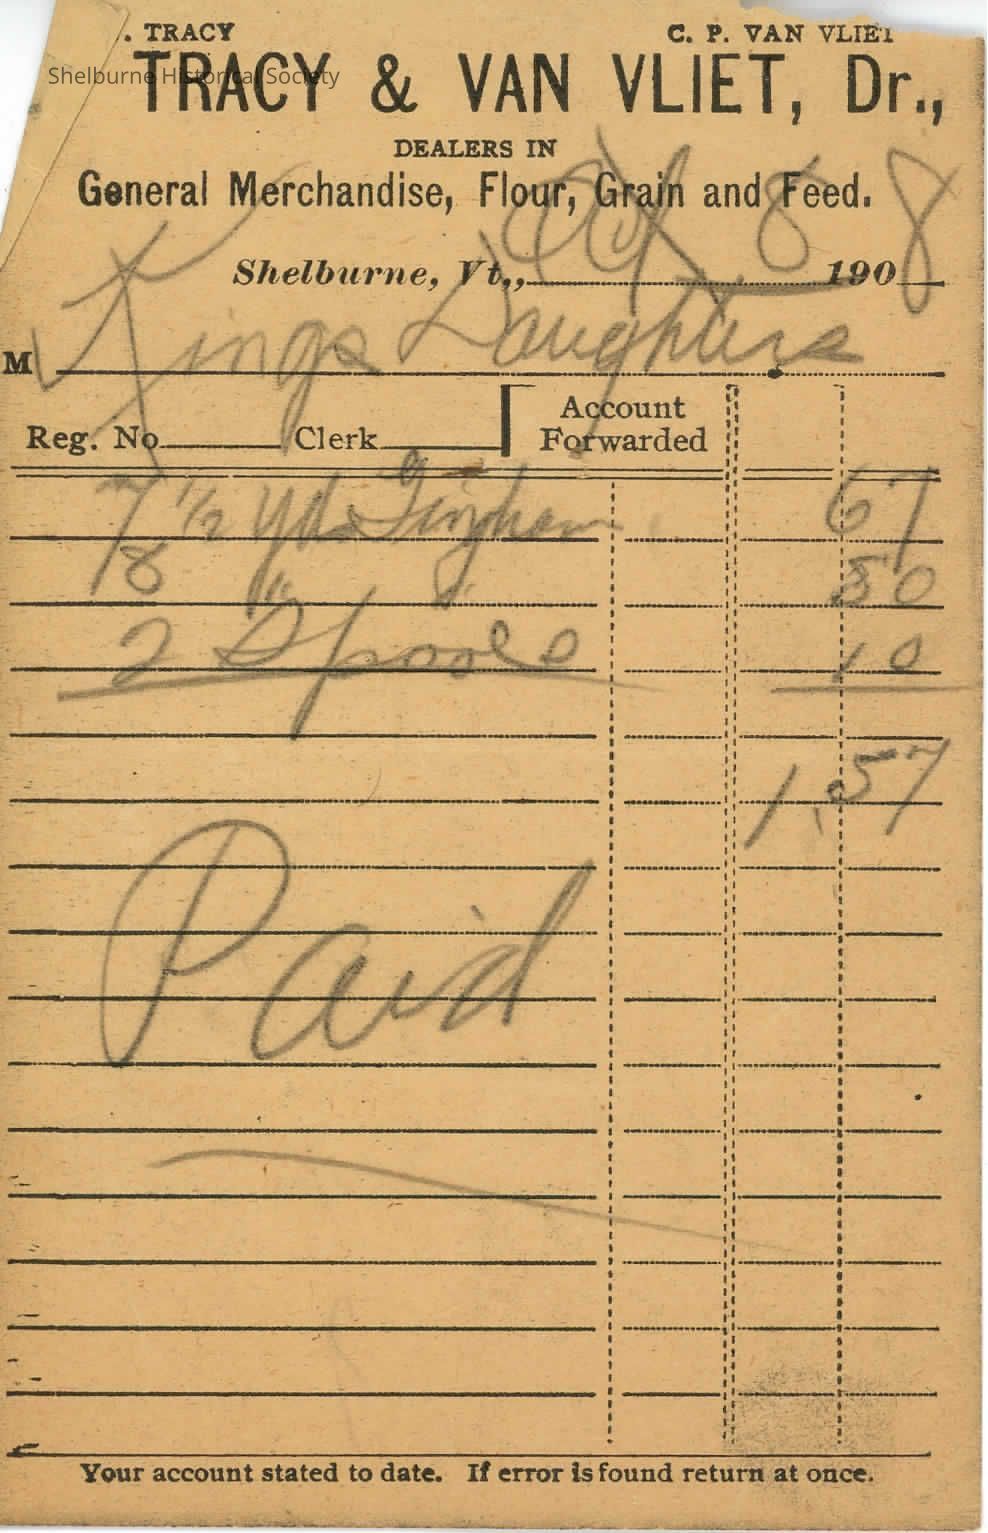 . TRACY C. P. VAN VLIET
Shelburne Historical Society
TRACY & VAN VLIET, Dr.,
DEALERS IN
General Merchandise, Flour, Grain and Feed.
Shelburne, Vt., Oct 8 190 8
M Kings Daughters
Reg. No Clerk Account Forwarded
7 1/2 yds Gingham 67
8 " " 80
2 Spools 10
1.57
Paid
Your account stated to date. If error is found return at once.